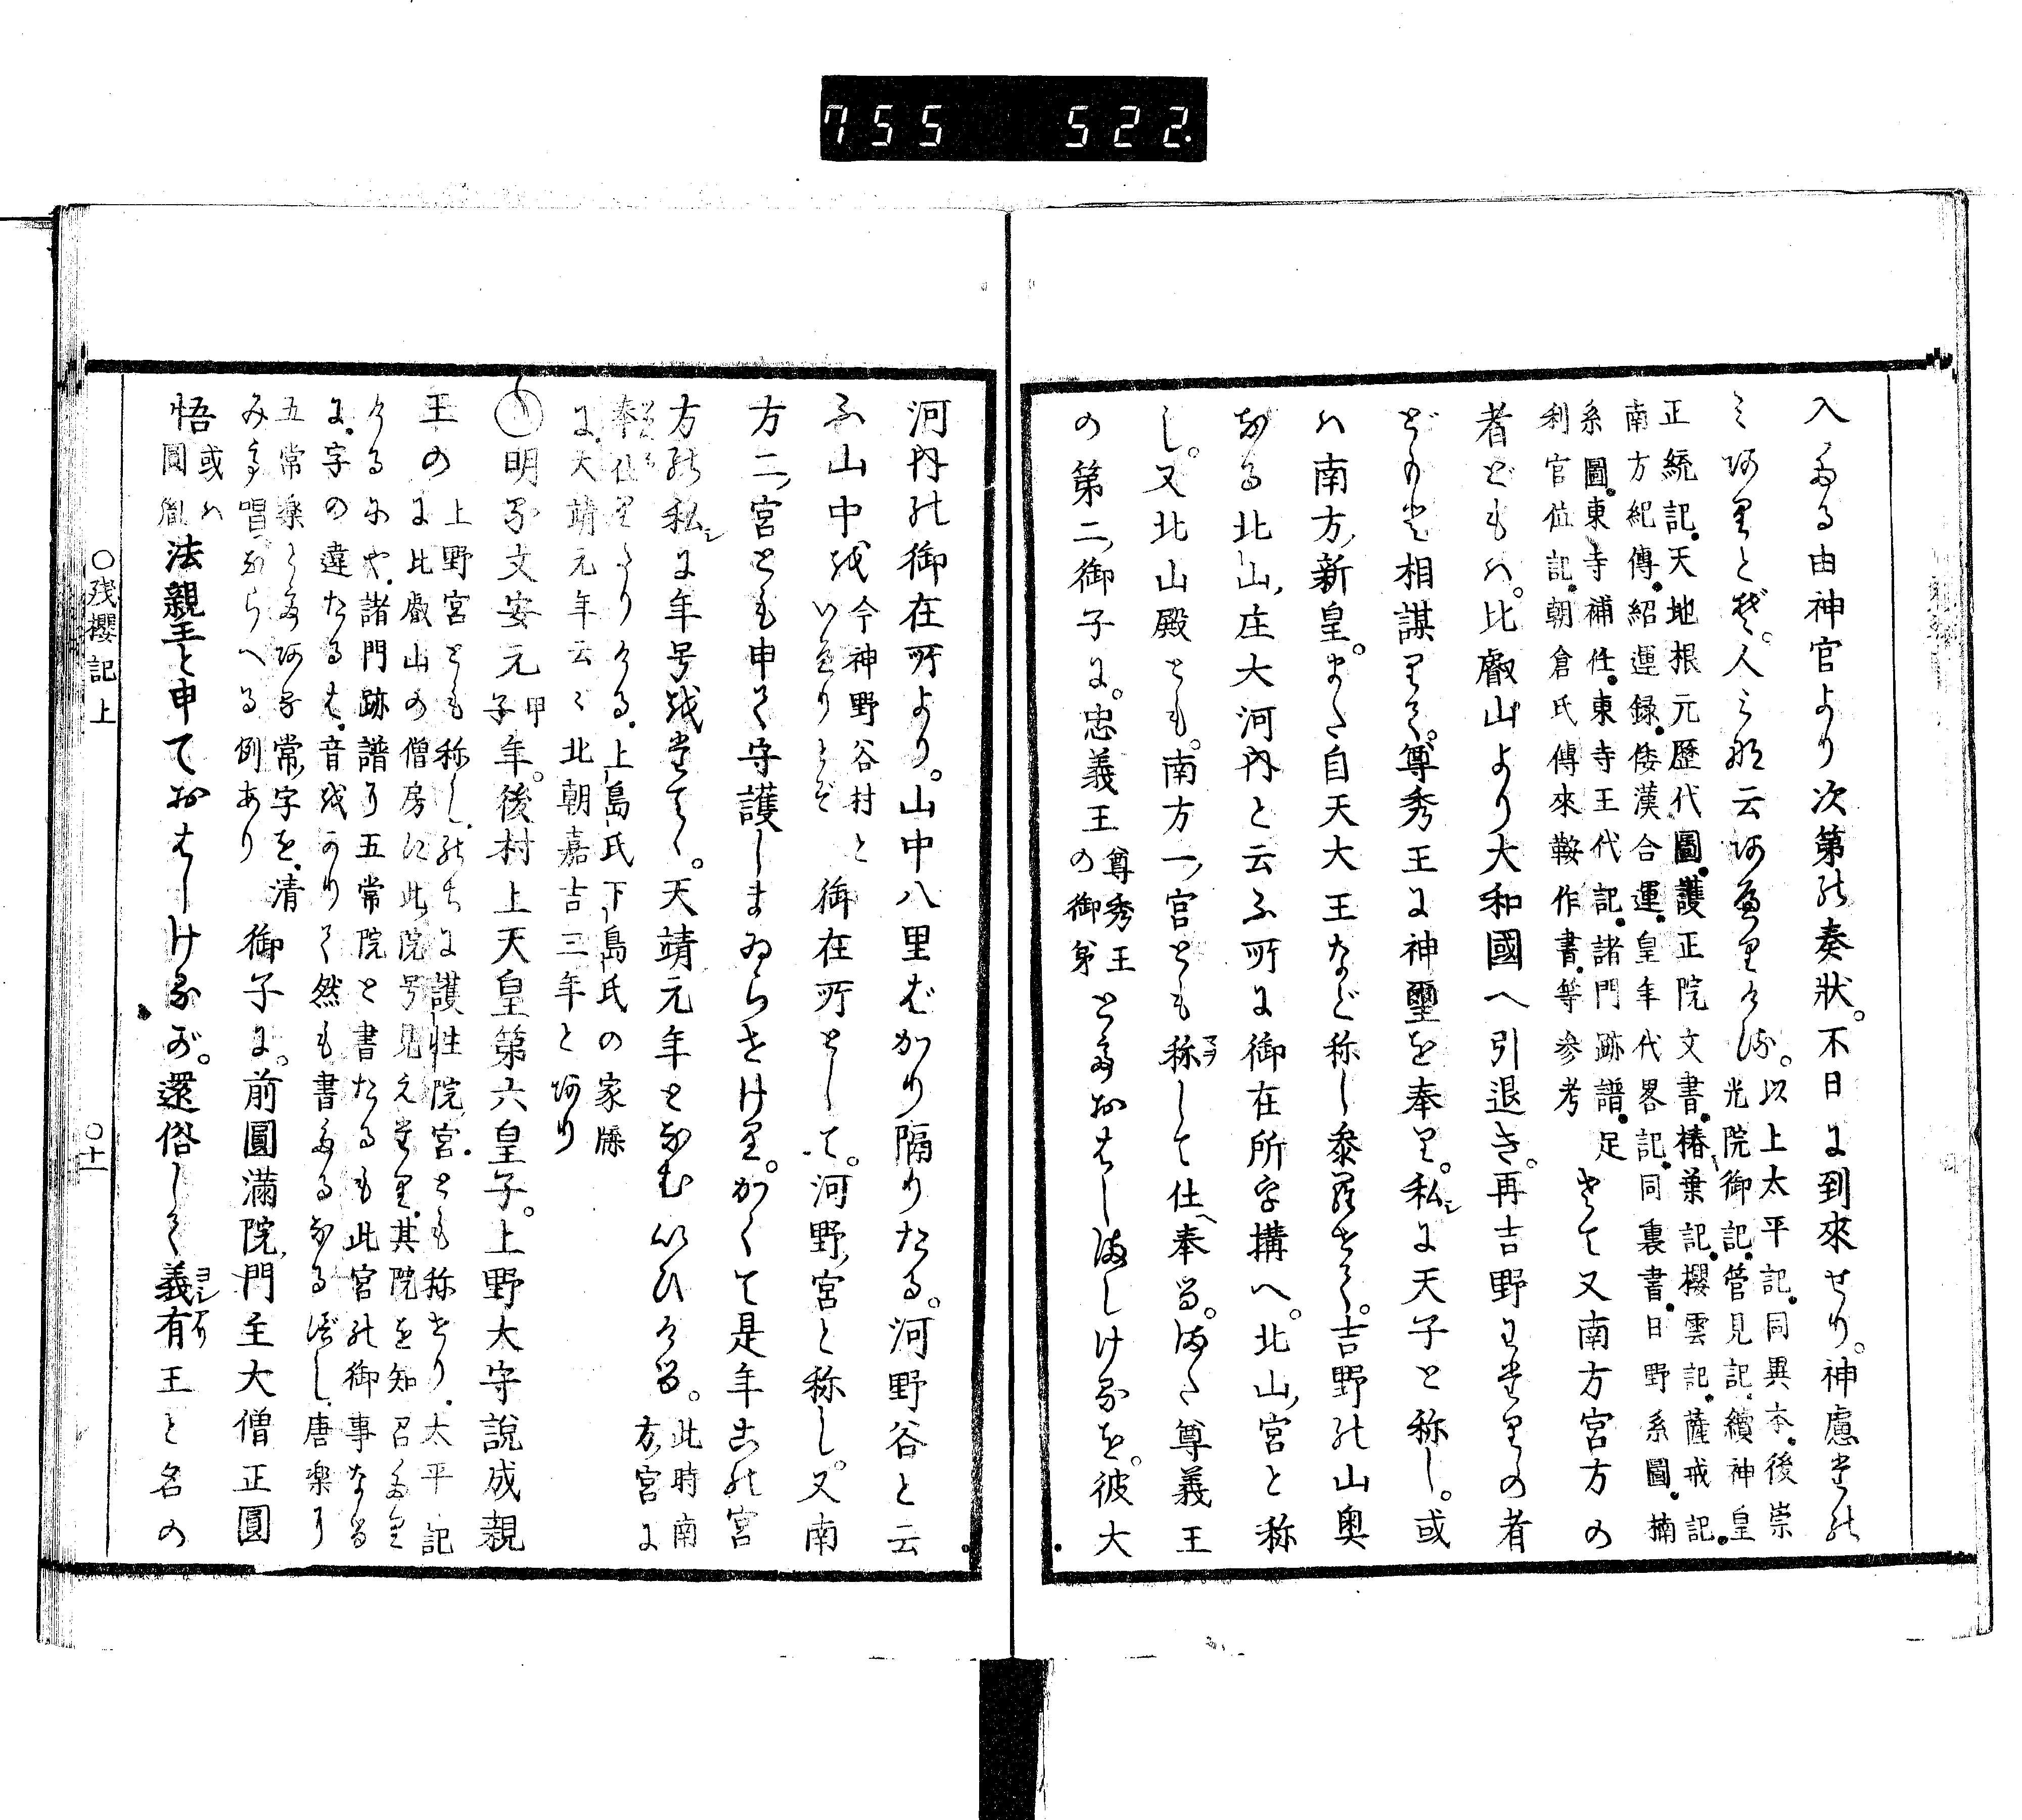 755 522.
入たる由神官より次第の奏状。不日に到来せり。神慮たの
みありとぞ。人みな云あへりける。以上太平記。同異本。後崇
光院御記。管見記。續神皇
正統記。天地根元歴代圖。護正院文書。椿葉記。櫻雲記。薩戒記。
南方紀傳。紹運録。倭漢合運。皇年代畧記。同裏書。日野系圖。楠
系圖。東寺補任。東寺王代記。諸門跡譜。足
利官位記。朝倉氏傳來鞍作書。等参考
さて又南方宮方の
者どもハ。比叡山より大和國へ引退き。再吉野わたりの者
どもと相謀りて。尊秀王に神璽を奉り。私に天子と称し。或
ハ南方新皇。また自天大王など称し參羅せて。吉野の山奥
なる北山庄大河内と云ふ所に御在所を構へ。北山宮と称
し。又北山殿とも。南方一宮とも称して仕奉る。また尊義王
の第二御子に。忠義王の御弟尊秀王となおはしましけるを。彼大
河内の御在所より。山中八里ばかり隔りたる。河野谷と云
ふ山中を今神野谷村といへりとぞ御在所として。河野宮と称し。又南
方二宮とも申て守護しまゐらせけり。かくて是年この宮
方の私に年号を立て。天靖元年となむいひける。此時南
方宮に
奉仕りたりける。上島氏下島氏の家牒
に。天靖元年云々北朝嘉吉三年とあり
明る文安元甲子年。後村上天皇第六皇子。上野太守説成親
王の上野宮とも称し。のちに護性院宮。とも称せり。太平記
に比叡山の僧房に此院号見えたり。其院を知召たり
けるにや。諸門跡譜に五常院と書たるも此宮の御事なる
に。字の違たるは。音をかりて然も書たるなるべし。唐楽に
五常楽となある常字を。清
みて唱ならへる例あり
御子に。前圓滿院門主大僧正圓
悟或ハ圓胤法親王と申ておはしけるが。還俗して義有王と名の
○残櫻記上
○十一